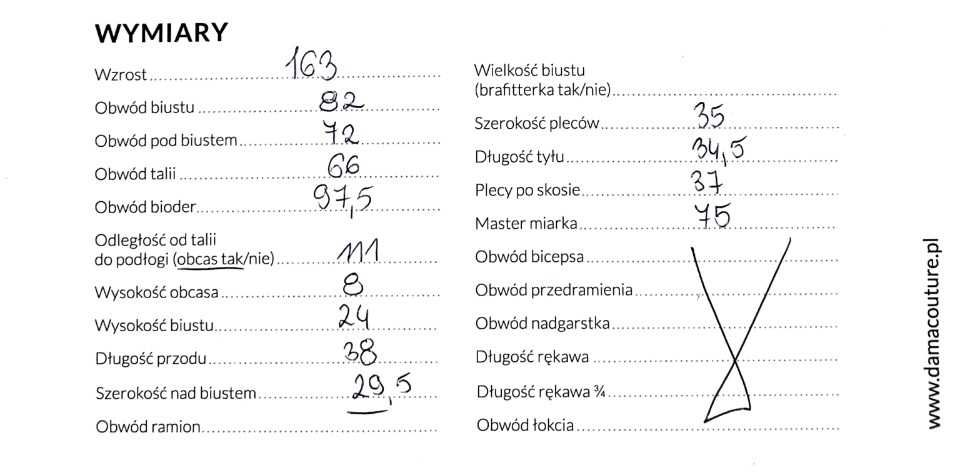 WYMIARY
Wzrost 163
Obwód biustu 82
Obwód pod biustem 72
Obwód talii 66
Obwód bioder 97,5
Odległość od talii
do podłogi (obcas tak/nie) 111
Wysokość obcasa 8
Wysokość biustu 24
Długość przodu 38
Szerokość nad biustem 29,5
Obwód ramion
Wielkość biustu
(brafitterka tak/nie)
Szerokość pleców 35
Długość tyłu 34,5
Plecy po skosie 37
Master miarka 75
Obwód bicepsa
Obwód przedramienia
Obwód nadgarstka
Długość rękawa
Długość rękawa ¾
Obwód łokcia
www.damacouture.pl